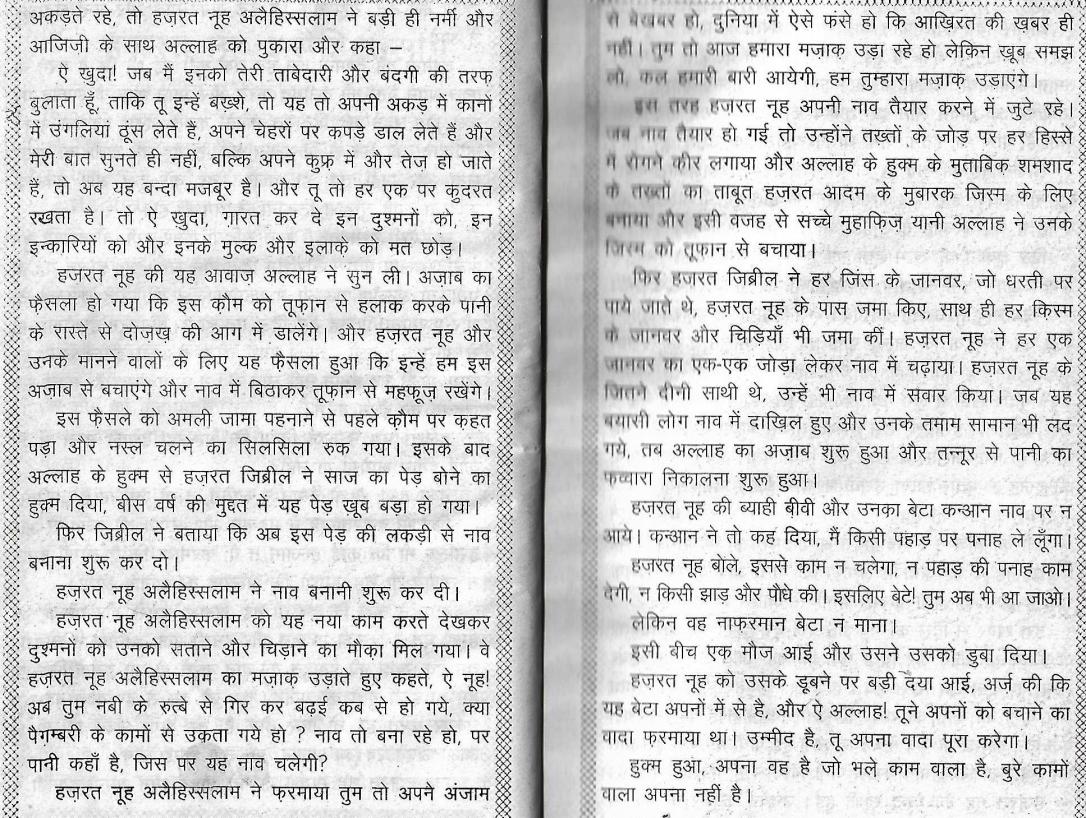 अकड़ते रहे, तो हज़रत नूह अलैहिस्सलाम ने बड़ी ही नर्मी और
आजिजी के साथ अल्लाह को पुकारा और कहा –
ऐ खुदा! जब मैं इनको तेरी ताबेदारी और बंदगी की तरफ
बुलाता हूँ, ताकि तू इन्हें बख़्शे, तो यह तो अपनी अकड़ में कानों
में उंगलियां ठूंस लेते हैं, अपने चेहरों पर कपड़े डाल लेते हैं और
मेरी बात सुनते ही नहीं, बल्कि अपने कुफ़्र में और तेज़ हो जाते
हैं, तो अब यह बन्दा मजबूर है। और तू तो हर एक पर कुदरत
रखता है। तो ऐ खुदा, ग़ारत कर दे इन दुश्मनों को, इन
इन्कारियों को और इनके मुल्क और इलाके़ को मत छोड़।
हजरत नूह की यह आवाज़ अल्लाह ने सुन ली। अज़ाब का
फ़ैसला हो गया कि इस क़ौम को तूफ़ान से हलाक करके पानी
के रास्ते से दोज़ख़ की आग में डालेंगे। और हज़रत नूह और
उनके मानने वालों के लिए यह फ़ैसला हुआ कि इन्हें हम इस
अज़ाब से बचाएंगे और नाव में बिठाकर तूफ़ान से महफूज़ रखेंगे।
इस फ़ैसले को अमली जामा पहनाने से पहले क़ौम पर कहत
पड़ा और नस्ल चलने का सिलसिला रुक गया। इसके बाद
अल्लाह के हुक्म से हज़रत जिब्रील ने साज का पेड़ बोने का
हुक्म दिया, बीस वर्ष की मुद्दत में यह पेड़ खूब बड़ा हो गया।
फिर जिब्रील ने बताया कि अब इस पेड़ की लकड़ी से नाव
बनाना शुरू कर दो।
हज़रत नूह अलैहिस्सलाम ने नाव बनानी शुरू कर दी।
हज़रत नूह अलैहिस्सलाम को यह नया काम करते देखकर
दुश्मनों को उनको सताने और चिड़ाने का मौक़ा मिल गया। वे
हज़रत नूह अलैहिस्सलाम का मज़ाक़ उड़ाते हुए कहते, ऐ नूह!
अब तुम नबी के रुत्बे से गिर कर बढ़ई कब से हो गये, क्या
पैगम्बरी के कामों से उकता गये हो ? नाव तो बना रहे हो, पर
पानी कहाँ है, जिस पर यह नाव चलेगी?
हज़रत नूह अलैहिस्सलाम ने फ़रमाया तुम तो अपने अंजाम
से बेखबर हो, दुनिया में ऐसे फंसे हो कि आख़िरत की ख़बर ही
नहीं। तुम तो आज हमारा मज़ाक़ उड़ा रहे हो लेकिन खूब समझ
लो, कल हमारी बारी आयेगी, हम तुम्हारा मज़ाक़ उड़ाएंगे।
इस तरह हज़रत नूह अपनी नाव तैयार करने में जुटे रहे।
जब नाव तैयार हो गई तो उन्होंने तख़्तों के जोड़ पर हर हिस्से
में रोगने कीर लगाया और अल्लाह के हुक्म के मुताबिक शमशाद
के तख्तों का ताबूत हज़रत आदम के मुबारक जिस्म के लिए
बनाया और इसी वजह से सच्चे मुहाफ़िज़ यानी अल्लाह ने उनके
जिस्म को तूफ़ान से बचाया।
फिर हज़रत जिब्रील ने हर जिंस के जानवर, जो धरती पर
पाये जाते थे, हज़रत नूह के पास जमा किए, साथ ही हर क़िस्म
के जानवर और चिड़ियाँ भी जमा कीं। हज़रत नूह ने हर एक
जानवर का एक-एक जोड़ा लेकर नाव में चढ़ाया। हज़रत नूह के
जितने दीनी साथी थे, उन्हें भी नाव में सवार किया। जब यह
बयासी लोग नाव में दाख़िल हुए और उनके तमाम सामान भी लद
गये, तब अल्लाह का अज़ाब शुरू हुआ और तन्नूर से पानी का
फव्वारा निकालना शुरू हुआ।
हज़रत नूह की ब्याही बीवी और उनका बेटा कन्आन नाव पर न
आये। कन्आन ने तो कह दिया, मैं किसी पहाड़ पर पनाह ले लूँगा।
हज़रत नूह बोले, इससे काम न चलेगा, न पहाड़ की पनाह काम
देगी, न किसी झाड़ और पौधे की। इसलिए बेटे! तुम अब भी आ जाओ।
लेकिन वह नाफ़रमान बेटा न माना।
इसी बीच एक मौज आई और उसने उसको डुबा दिया।
हज़रत नूह को उसके डूबने पर बड़ी दया आई, अर्ज़ की कि
यह बेटा अपनों में से है, और ऐ अल्लाह! तूने अपनों को बचाने का
वादा फ़रमाया था। उम्मीद है, तू अपना वादा पूरा करेगा।
हुक्म हुआ, अपना वह है जो भले काम वाला है, बुरे कामों
वाला अपना नहीं है।